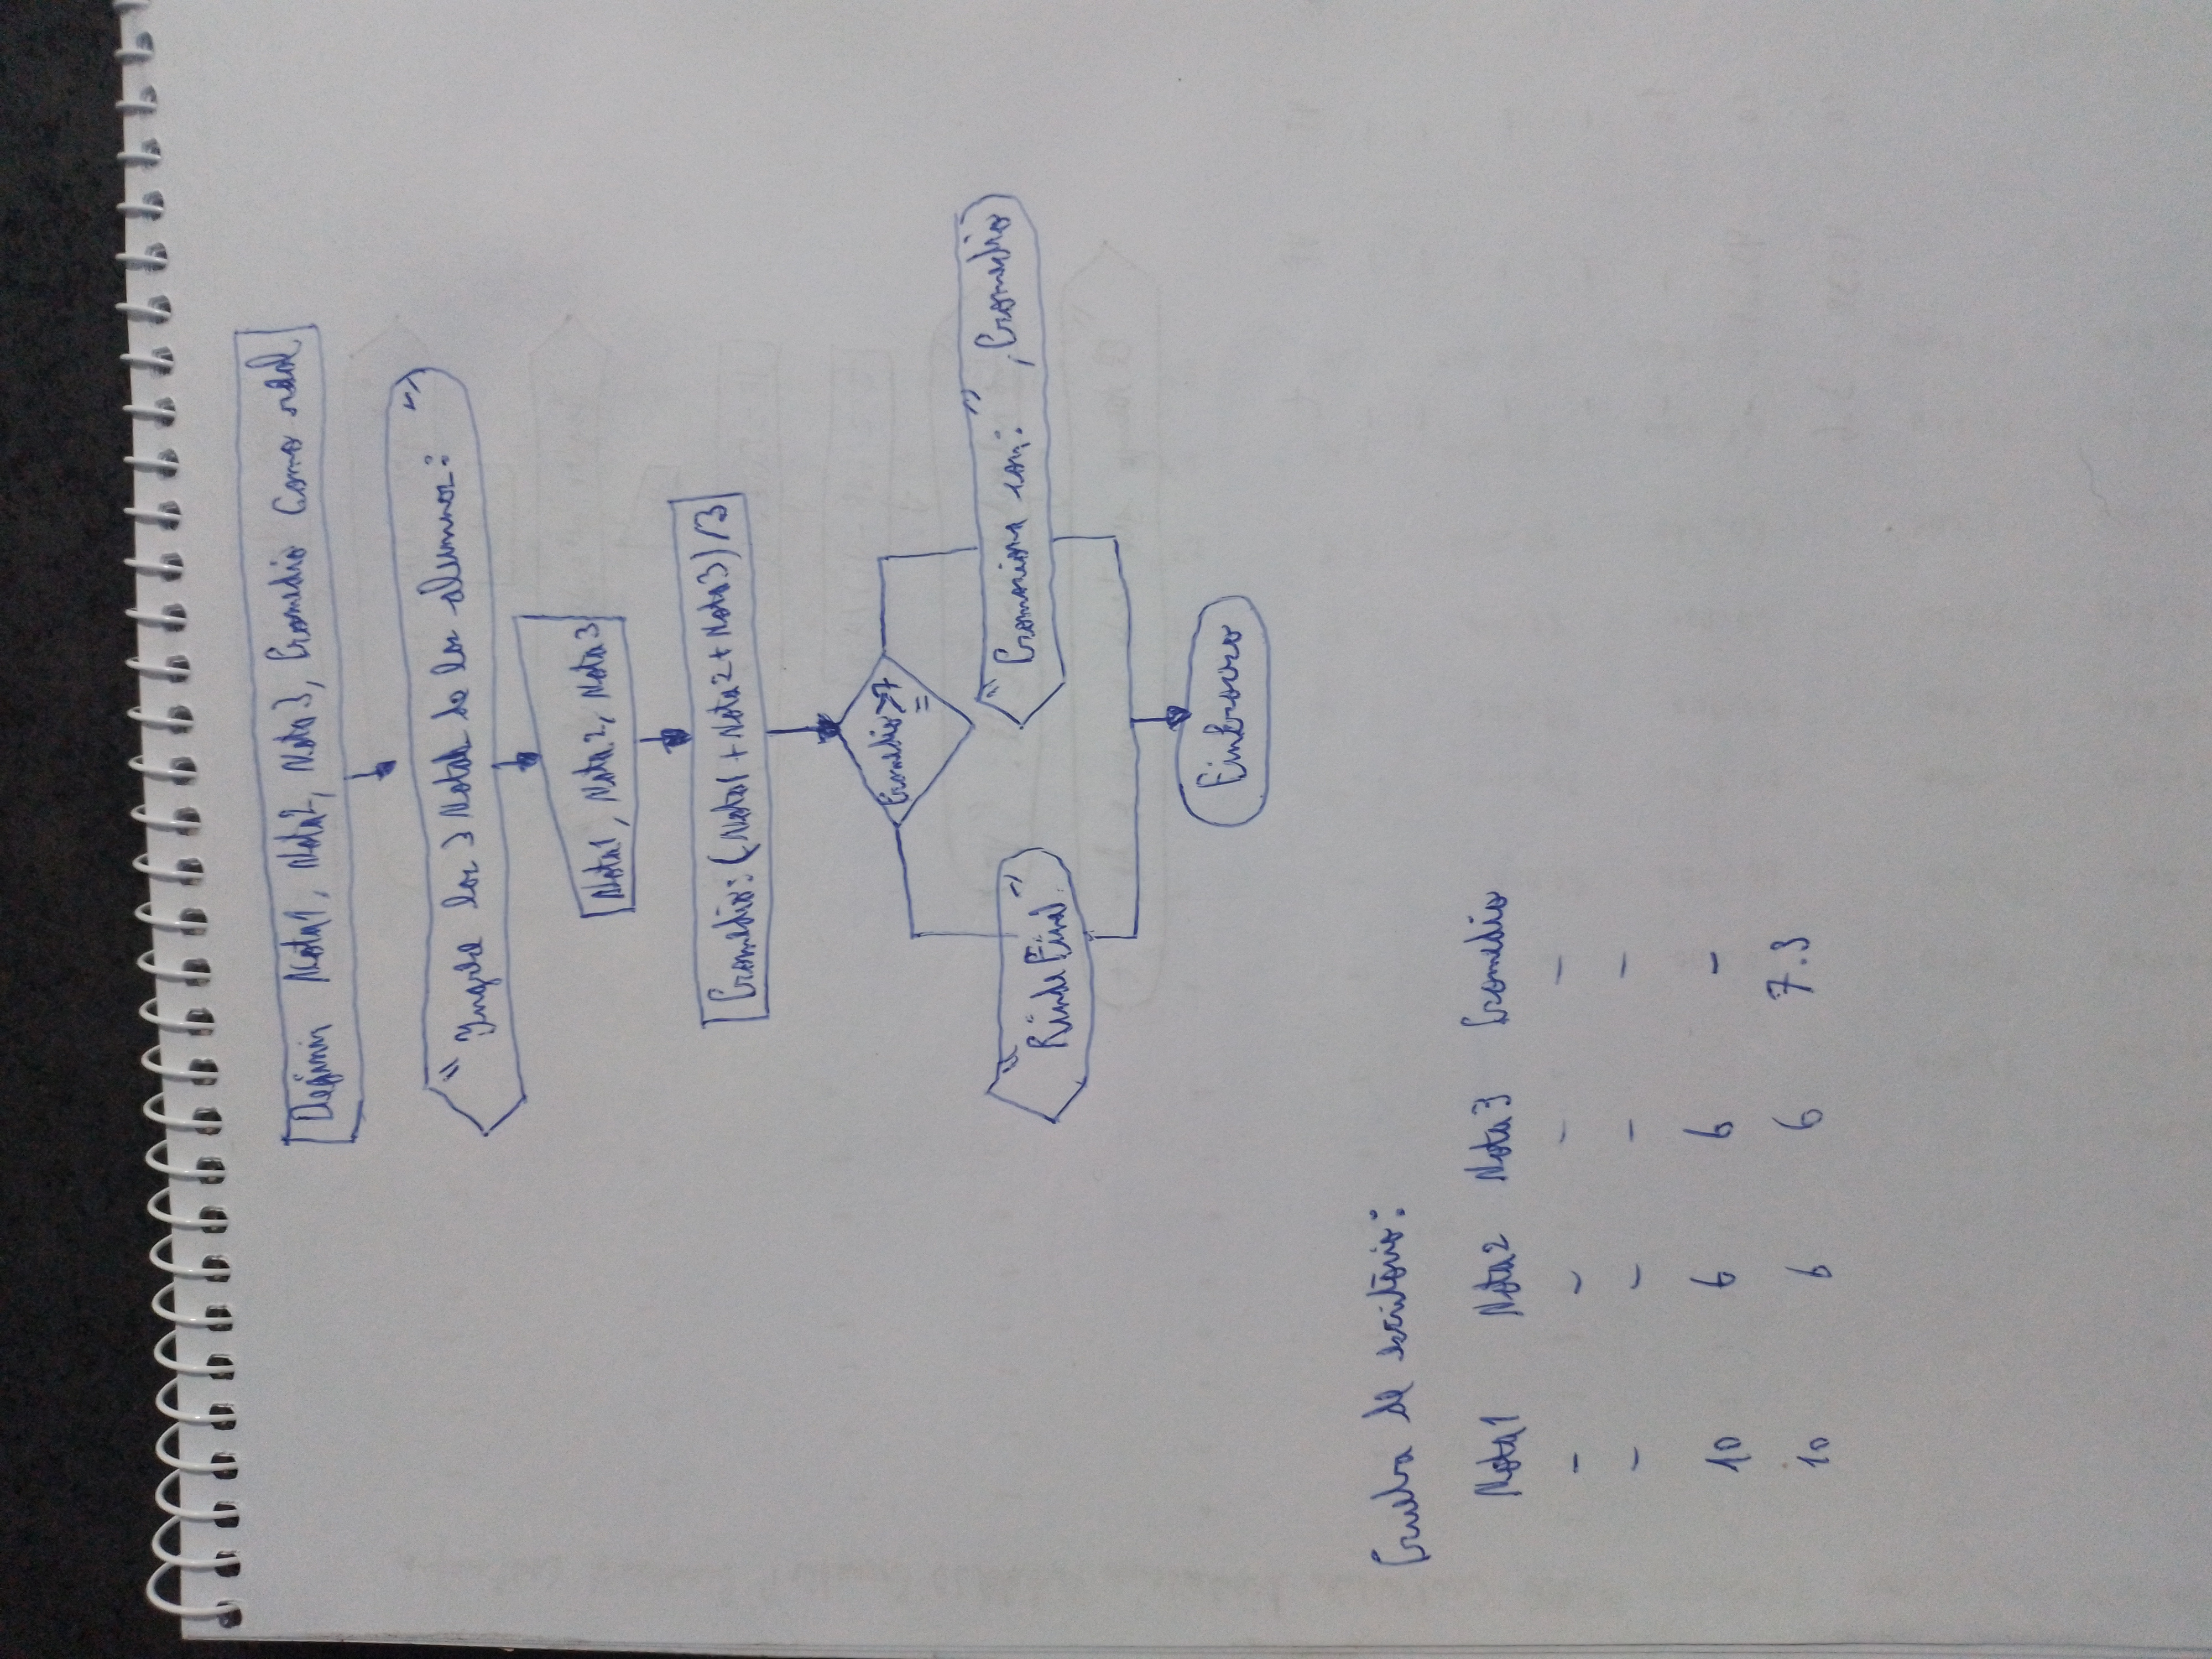 Definir Nota1, Nota2, Nota3, Promedio Como real
"Ingrese los 3 Notas de los alumnos: "
Nota1, Nota2, Nota3
Promedio: (Nota1 + Nota2 + Nota3) / 3
Promedio >= 7
"Rinde Final"
"Promociona con: ", Promedio
FinProceso
Prueba de escritório:
Nota1 Nota2 Nota3 Promedio
- - - -
- - - -
10 6 6 -
10 6 6 7.3